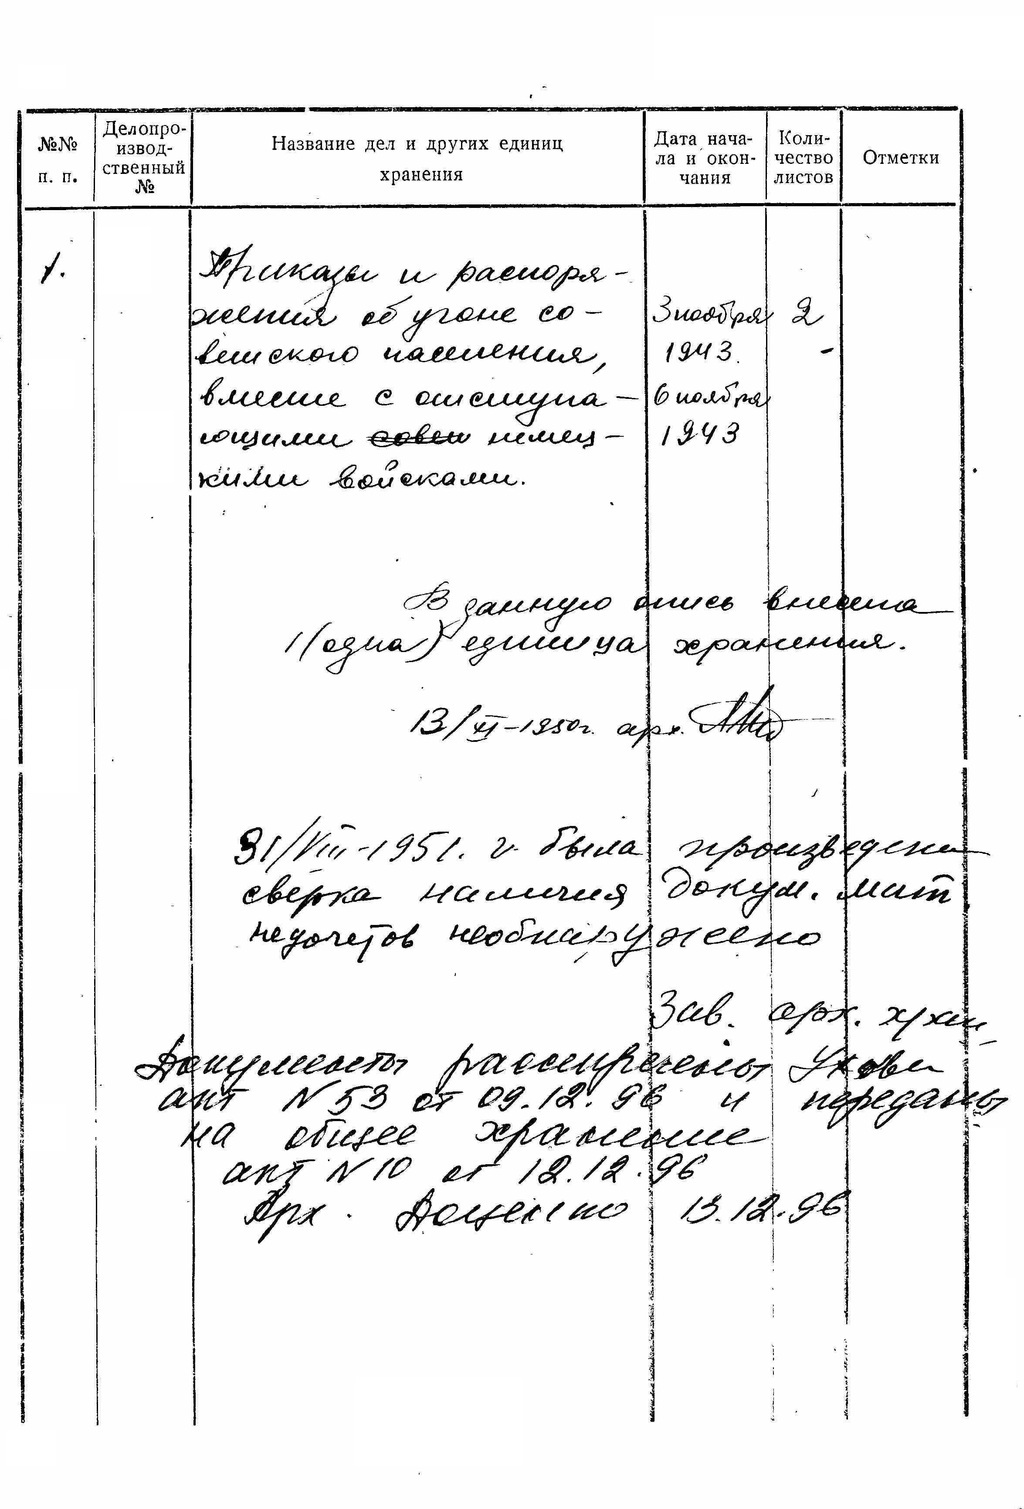 №№ п. п.
Делопро-извод-ственный №
Название дел и других единиц хранения
Дата нача-ла и окон-чания
Коли-чество листов
Отметки
1.
Приказы и распоря-
жения об угоне со-
ветского населения,
вместе с отступа-
ющими совет немец-
кими войсками.
3 ноября
1943.
6 ноября
1943
2
В данную опись внесена
1 (одна) единица хранения.
13/XI-1950г. арх.
31/VIII-1951. г была произведена
сверка наличия докум. мат
недочетов необнаружено
Зав. арх. хран
Документы рассекречены
акт N 53 от 09.12.96 и переданы
на общее хранение
акт N 10 от 12.12.96
Арх. Доценко 13.12.96